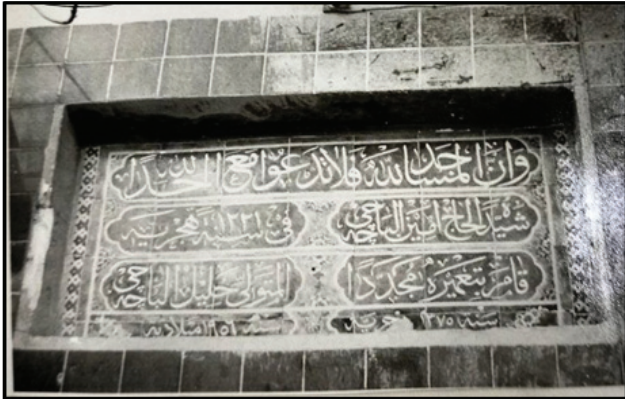 وان المساجد لله فلا تدعوا مع الله احدا
شيده الحاج امين الباجه جي في سنة ١٢٢١ هجرية
قام بتعميره مجددا المتولي خليل الباجه جي
سنة ١٣٧٥ هجرية سنة ميلادية